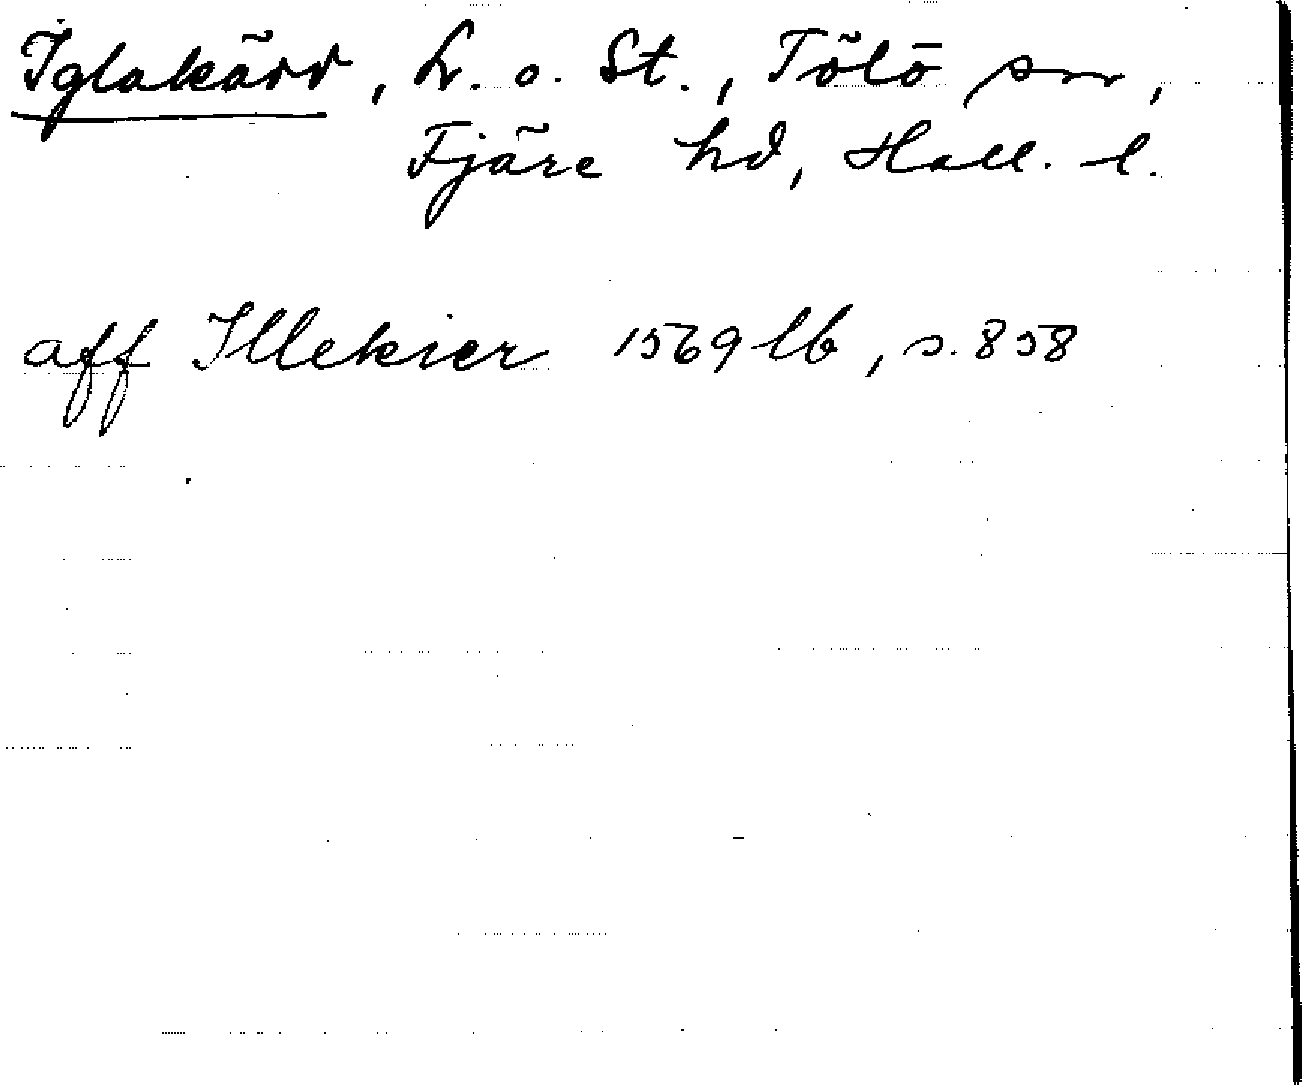 Iglakärr, L. o. St., Tölö sn,
Fjäre hd, Hall. l.
aff Illekier 1569 lb, s. 858